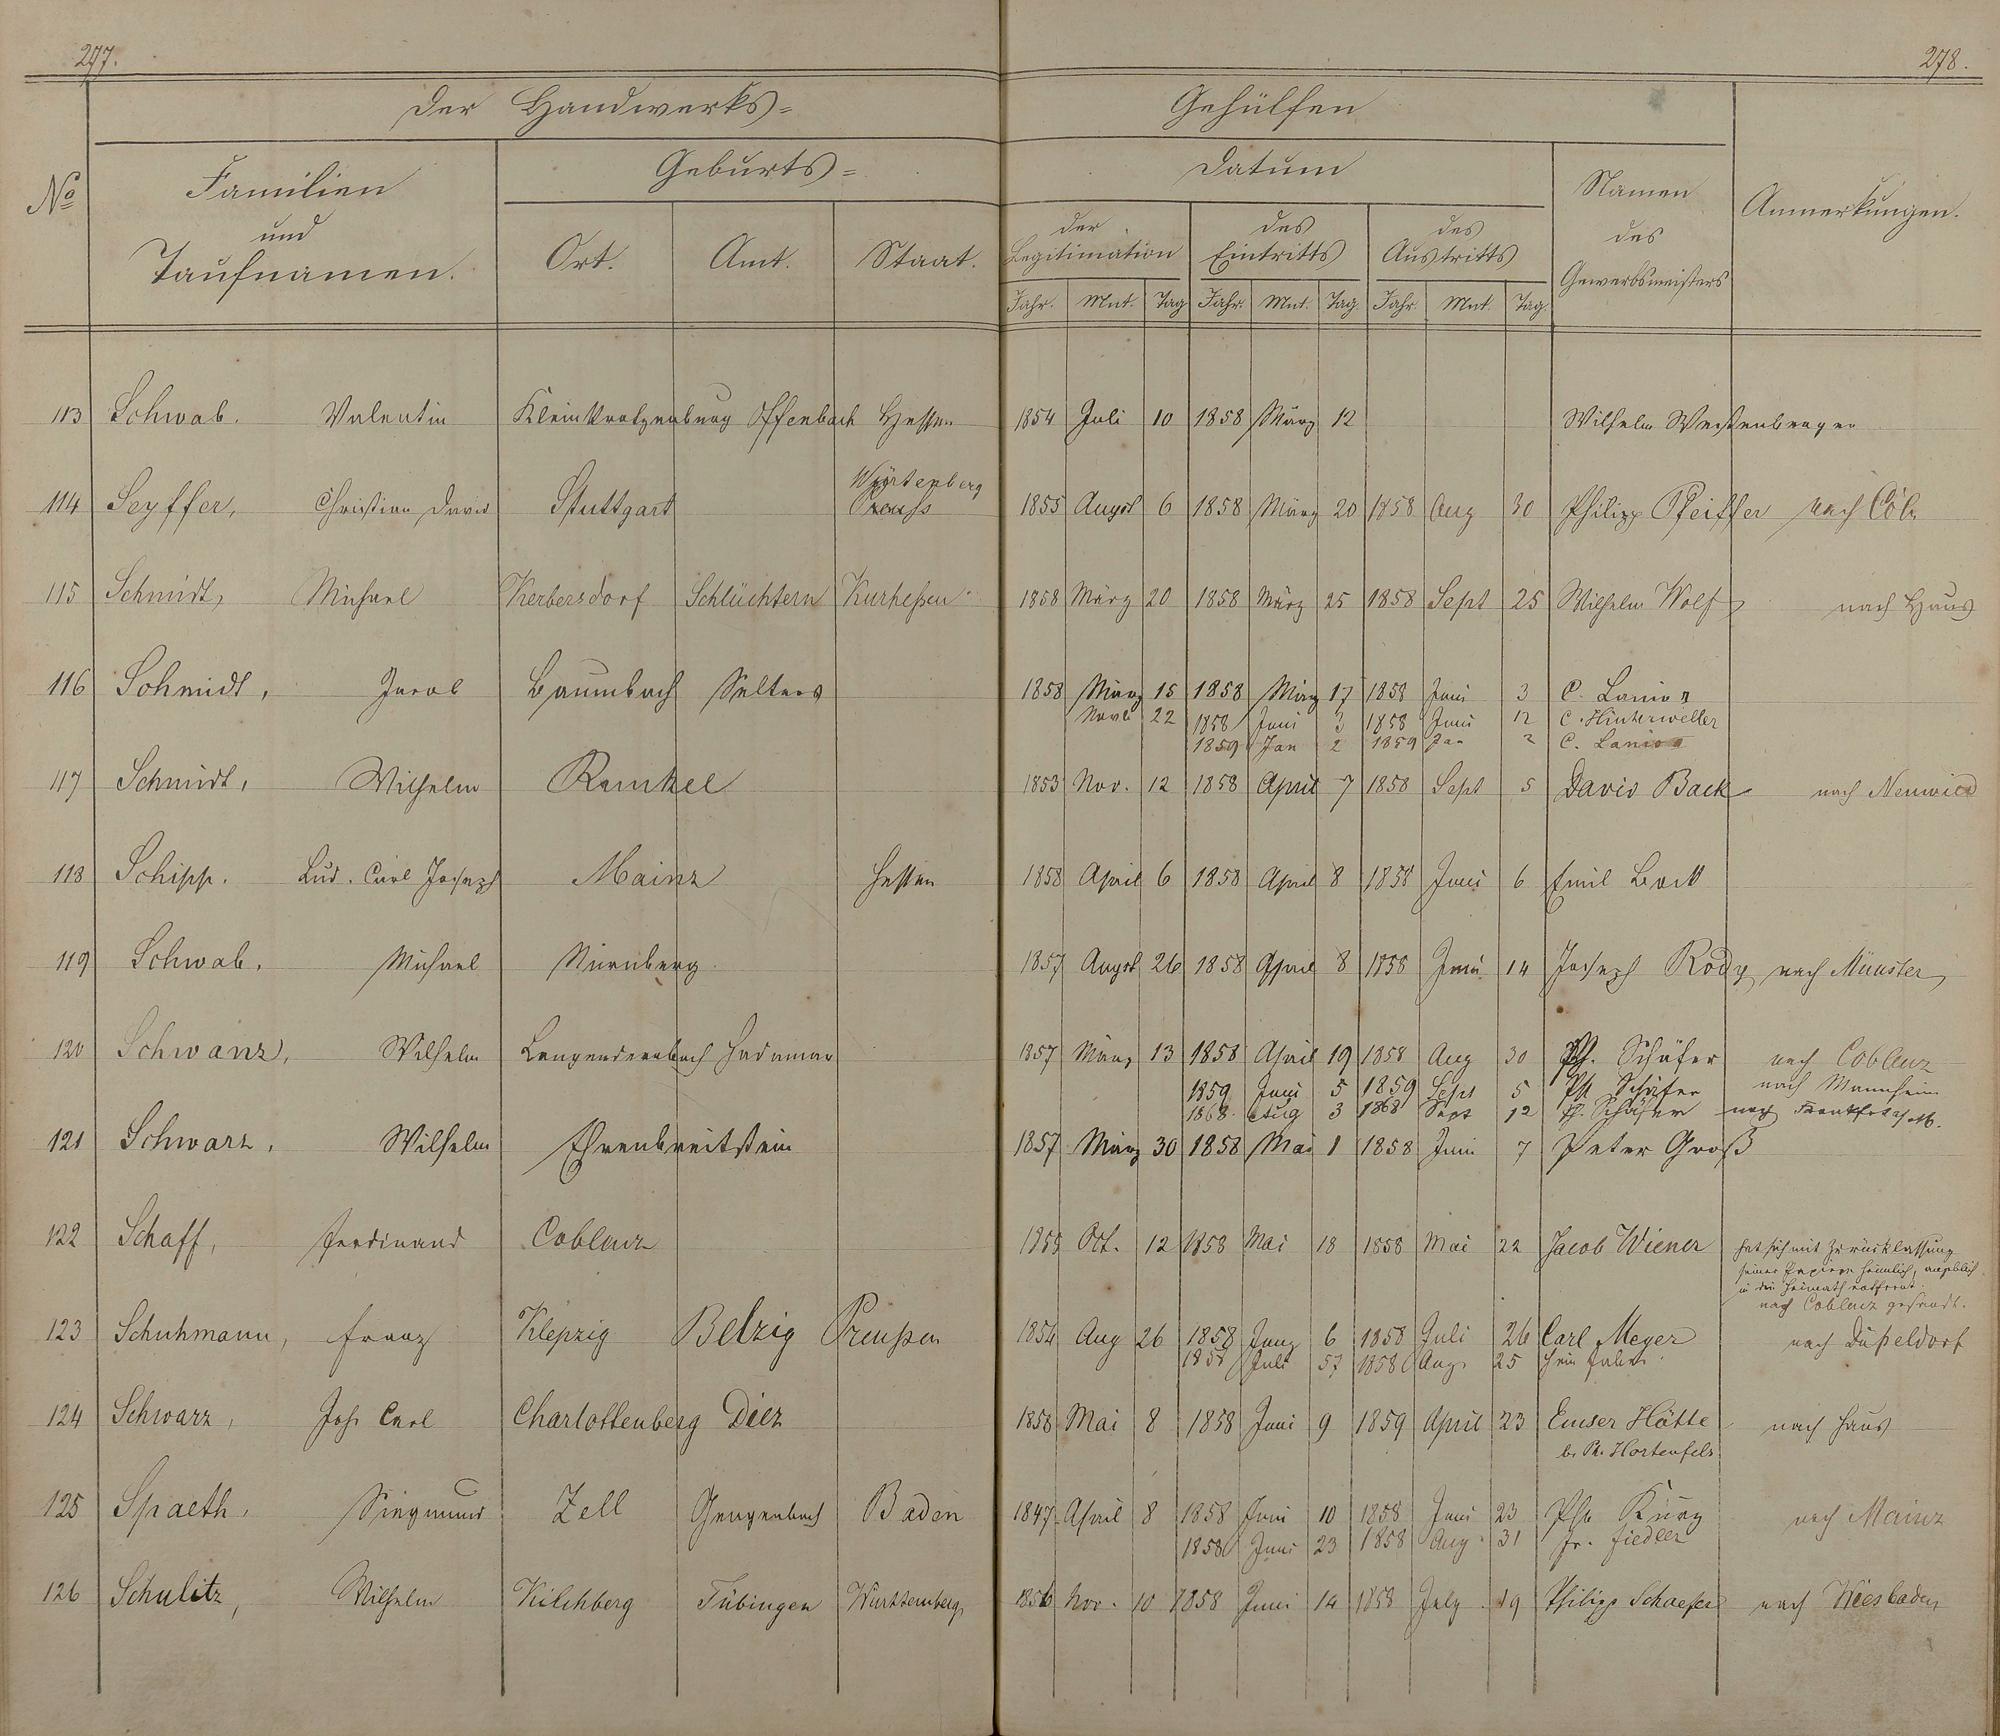 297. 278.
Der Handwerks= Gehülfen
No Familien und Taufnamen. Geburts= Datum Namen des Gewerbsmeisters Anmerkungen.
Ort. Amt. Staat. der Legitimation des Eintritts des Austritts
Jahr. Mnt. Tag Jahr. Mnt. Tag. Jahr. Mnt. Tag.
113 Schwab. Valentin Klein Krotzenburg Offenbach Hessen 1854 Juli 10 1858 März 12 Wilhelm
Würtenberg
114 Seyffer, Christian David Stuttgart 1855 Augst 6 1858 März 20 1858 Aug 30 Philipp Pfeiffer nach Cöln
115 Schmidt, Michael Kerbersdorf Schlüchtern Kurheßen 1858 März 20 1858 März 25 1858 Sept 25 Wilhelm Wolf nach Haus
116 Schmidt, Jacob Baumbach Selters 1858 März 15 1858 März 17 1858 Juni 3 C. Lanio
22 1858 Juni 3 1858 Juni 12 C. Hinterweller
1859 Jan 2 1859 Jan 2 C. Lanio
117 Schmidt, Wilhelm Runkel 1853 Nov. 12 1858 April 7 1858 Sept 5 David Back nach Neuwied
118 Schipp. Lud. Carl Joseph Mainz Hessen 1858 April 6 1858 April 8 1858 Juni 6 Emil
119 Schwab, Michael Nürnberg. 1857 Augst 26 1858 April 8 1858 Juni 14 Joseph Rody nach Münster
120 Schwanz, Wilhelm Langendernbach Hadamar 1857 März 13 1858 April 19 1858 Aug 30 Ph. Schäfer nach Coblenz
1859 Juni 5 1859 Sept 5 Ph Schäfer nach Mannheim
1868 Aug 3 1868 Sept 12 Ph. Schäfer nach Frankfurt a/M.
121 Schwarz, Wilhelm Ehrenbreitstein 1857 März 30 1858 Mai 1 1858 Juni 7 Peter Groß
122 Schaff, Ferdinand Coblenz Oct. 12 1858 Mai 18 1858 Mai 22 Jacob Wiener hat sich mit Zurücklassung
seiner Papiere heimlich, angeblich
in die Heimath entfernt.
nach Coblenz gesandt.
123 Schuhmann, Franz Klepzig Belzig Preußen 1854 Aug 26 1858 Juny 6 1858 Juli 26 Carl Meyer nach Düßeldorf
1858 Juli 1858 Aug. 25
124 Schwarz, Joh. Carl Charlottenberg Diez 1858 Mai 8 1858 Juni 9 1859 April 23 Emser Hütte nach Haus
b. Ph. Hortenfels
125 Spaeth, Siegmund Zell Gengenbach Baden 1847 April 8 1858 Juni 10 1858 Juni 23 Ph. nach Mainz
1858 Juni 23 1858 Aug. 31 Fr. Fiedler
126 Schulitz, Wilhelm Kilchberg Tübingen Württemberg 1856 Nov. 10 1858 Juni 14 1858 July 19 Philipp Schaefer nach Wiesbaden